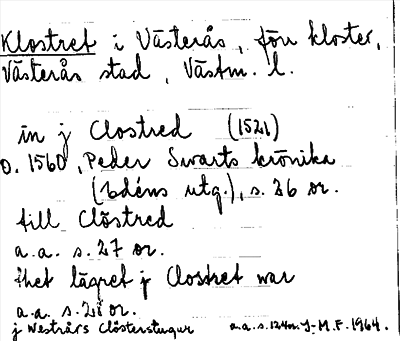 Klostret i Västerås, förr kloster,
Västerås stad, Västm. l.
in j Clostred (1521)
o. 1560, Peder Swarts krönika
(Edéns utg.), s. 26 or.
till Clöstred
a.a. s. 27 or.
thet lägret j Clostret war
a.a. s. 28 or.
j Westrårs Clösterstugur a.a. s. 124 M.F. 1964.